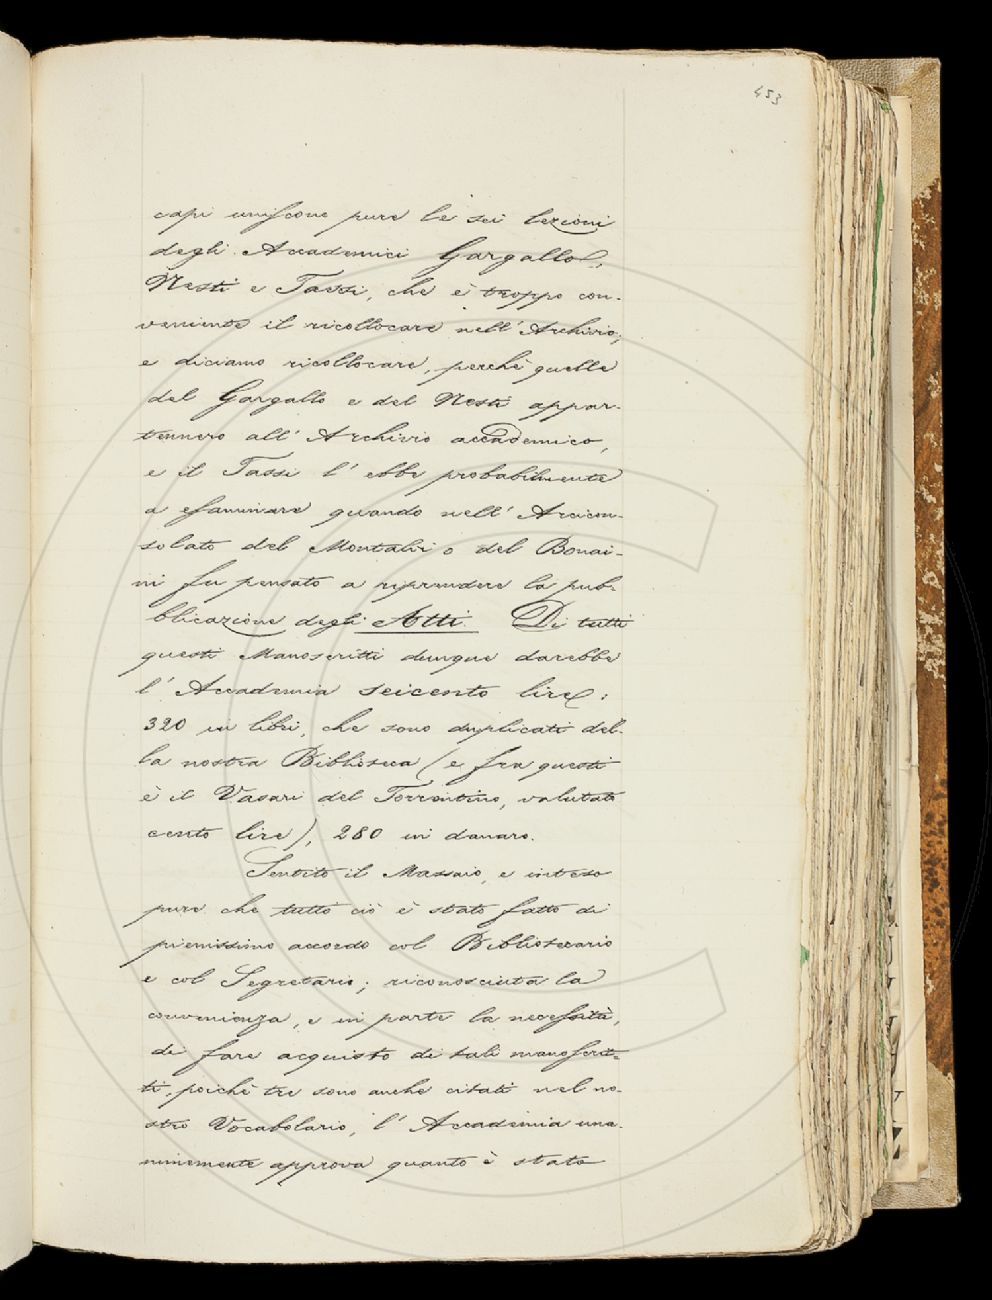 453
capi uniscone pure le sei lezioni
degli Accademici Gargallo,
Nesti e Tassi, che è troppo con-
veniente il ricollocare nell'Archivio;
e diciamo ricollocare, perchè quelle
del Gargallo e del Nesti appar-
tennero all'Archivio accademico,
e il Tassi l'ebbe probabilmente
a esaminare quando nell'Arcicon-
solato del Montalvi o del Bonai-
ni fu pensato a riprendere la pub-
blicazione degli Atti. Di tutti
questi Manoscritti dunque darebbe
l'Accademia seicento lire:
320 in libri, che sono duplicati del-
la nostra Biblioteca (e fra questi
è il Vasari del Torrentino, valutato
cento lire), 280 in danaro.
Sentito il Massaio, e inteso
pure che tutto ciò è stato fatto di
pienissimo accordo col Bibliotecario
e col Segretario; riconosciuta la
convenienza, e in parte la necessità,
di fare acquisto di tali manoscrit-
ti, poichè tre sono anche citati nel no-
stro Vocabolario, l'Accademia una-
nimemente approva quanto è stato